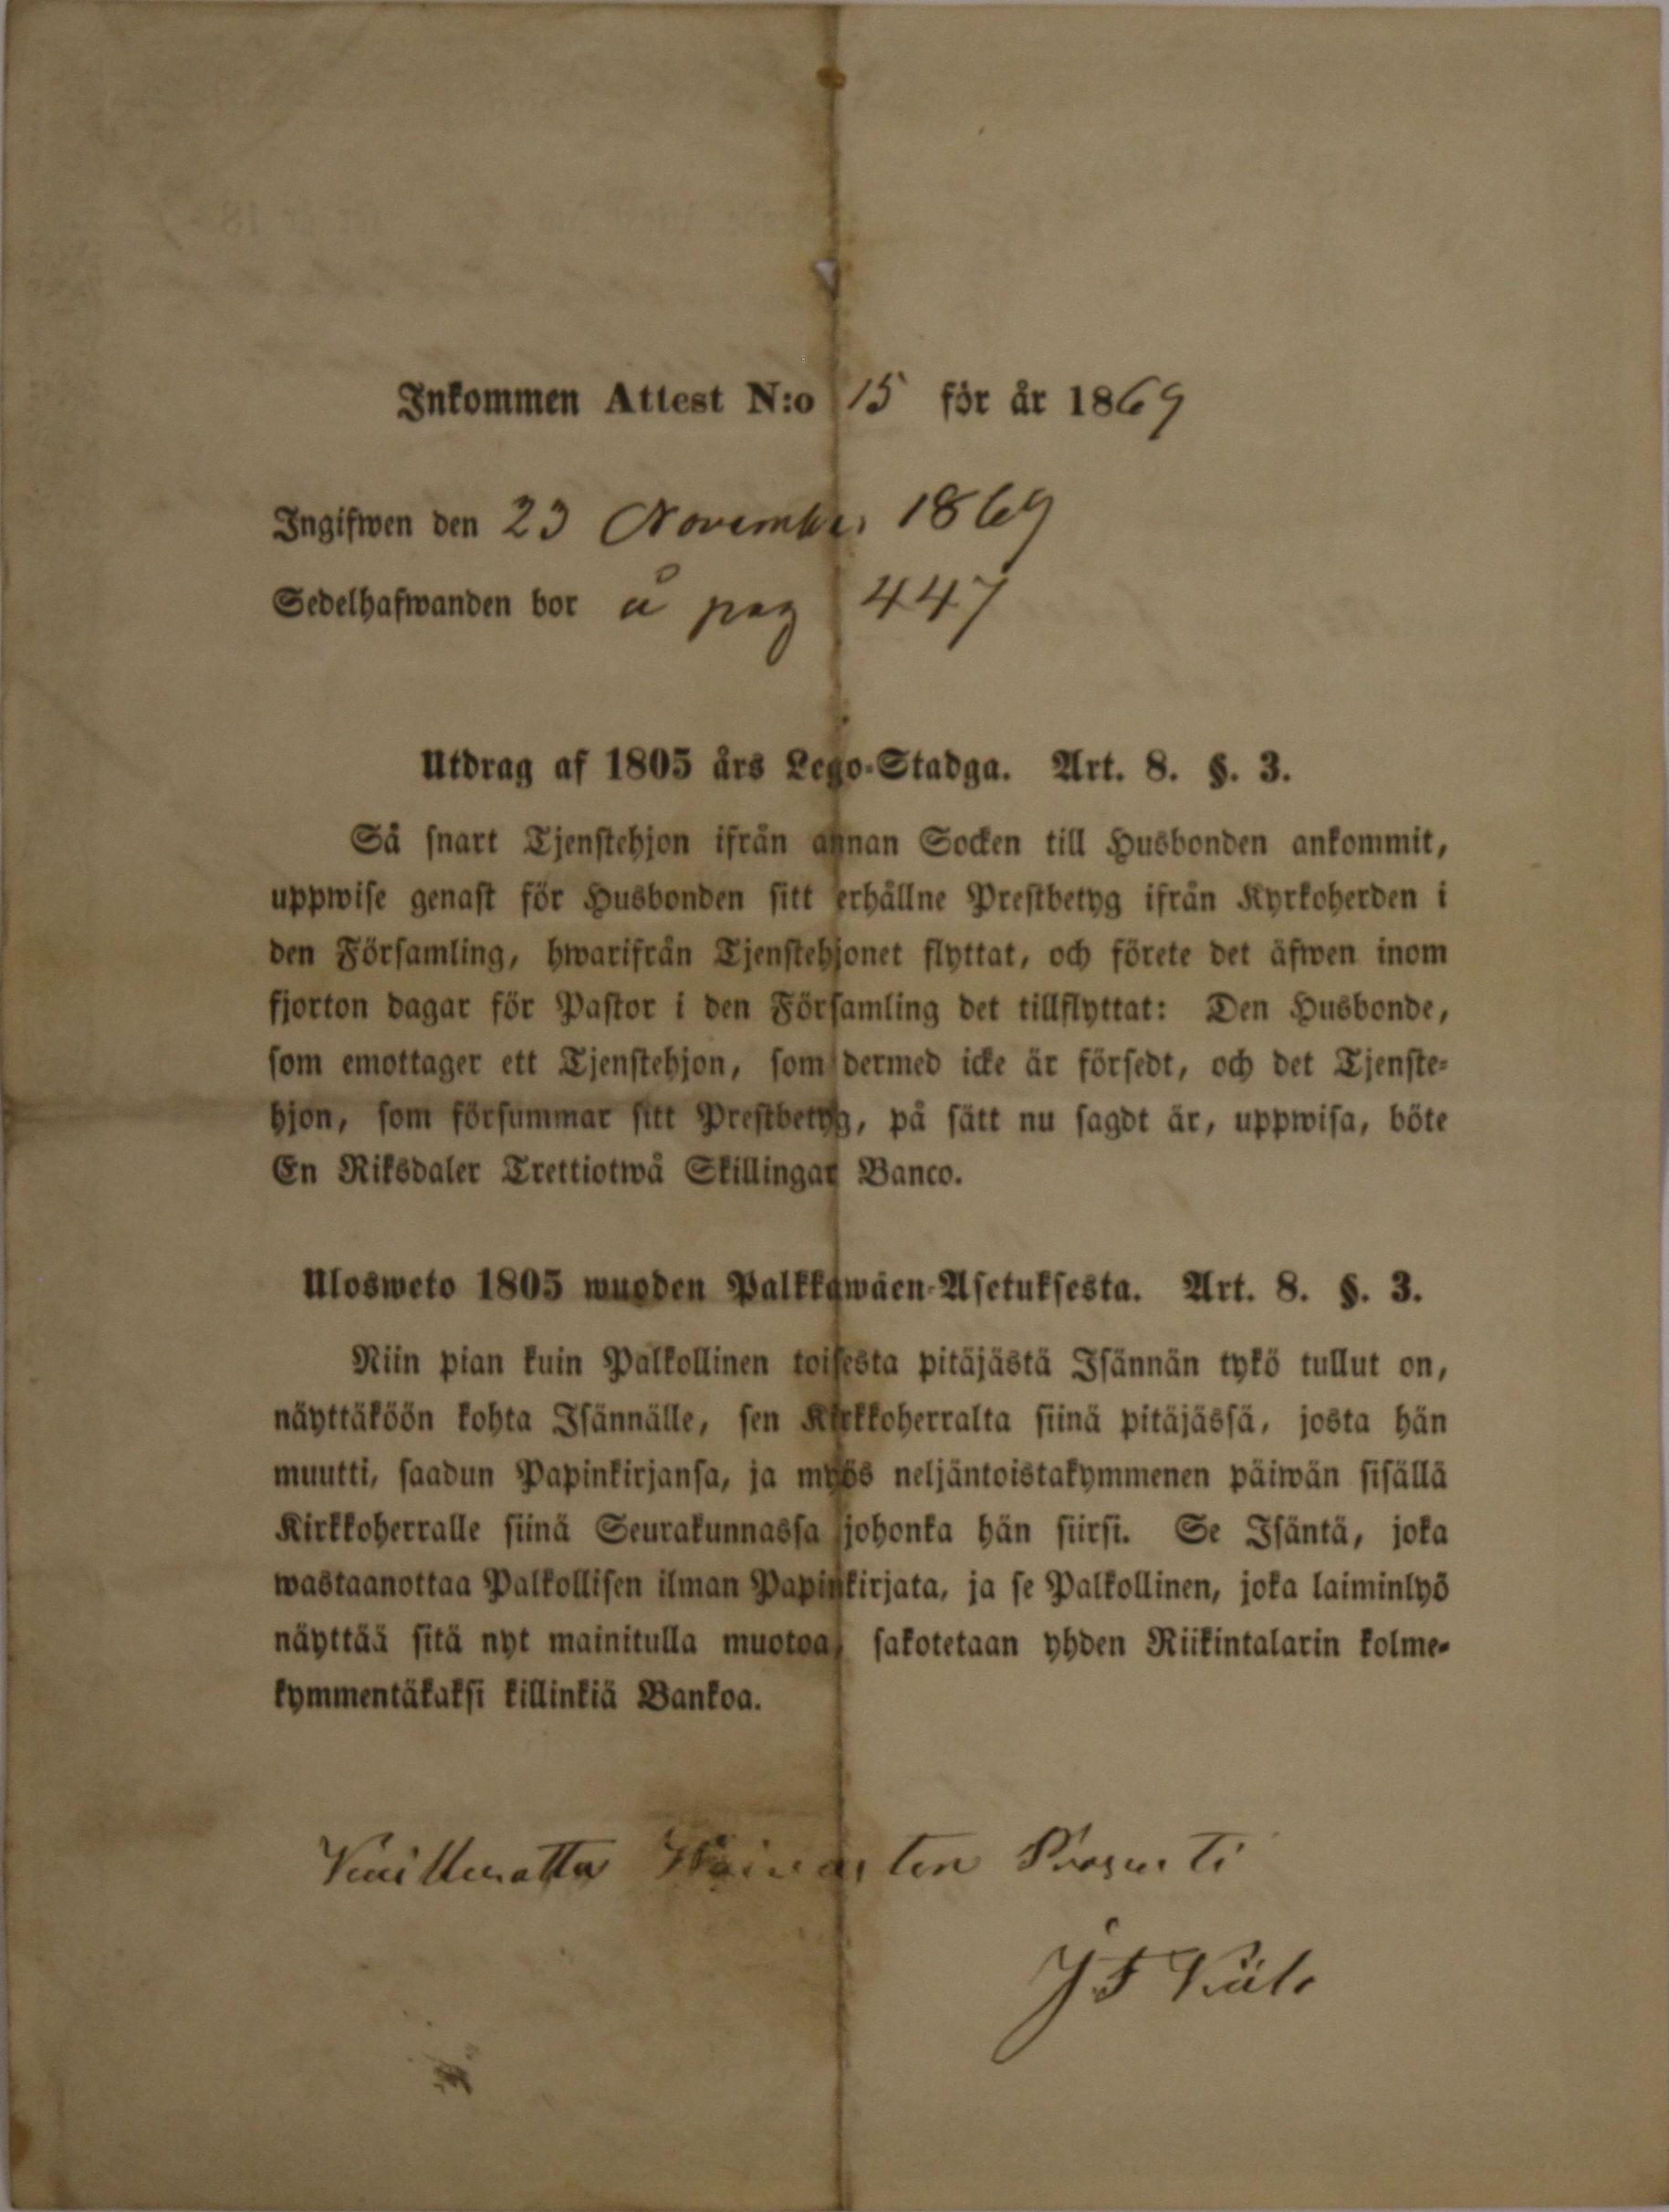 Inkommen Attest N:o 15 för år 1869
Ingifwen den 23 November 1869
Sedelhafwanden bor å pag 447
Utdrag af 1805 års Lego-Stadga. Art. 8. §. 3.
Så snart Tjenstehjon ifrån annan Socken till Husbonden ankommit,
uppwise genast för Husbonden sitt erhållne Prestbetyg ifrån Kyrkoherden i
den Församling, hwarifrån Tjenstehjonet flyttat, och förete det äfwen inom
fjorton dagar för Pastor i den Församling det tillflyttat: Den Husbonde,
som emottager ett Tjenstehjon, som dermed icke är försedt, och det Tjenste-
hjon, som försummar sitt Prestbetyg, på sätt nu sagdt är, uppwisa, böte
En Riksdaler Trettiotwå Skillingar Banco.
Ulosweto 1805 wuoden Palkkawäen-Asetuksesta. Art. 8. §. 3.
Niin pian kuin Palkollinen toisesta pitäjästä Isännän tykö tullut on,
näyttäköön kohta Isännälle, sen Kirkkoherralta siinä pitäjässä, josta hän
muutti, saadun Papinkirjansa, ja myös neljäntoistakymmenen päiwän sisällä
Kirkkoherralle siinä Seurakunnassa johonka hän siirsi. Se Isäntä, joka
wastaanottaa Palkollisen ilman Papinkirjata, ja se Palkollinen, joka laiminlyö
näyttää sitä nyt mainitulla muotoa, sakotetaan yhden Riikintalarin kolme-
kymmentäkaksi killinkiä Bankoa.
J F